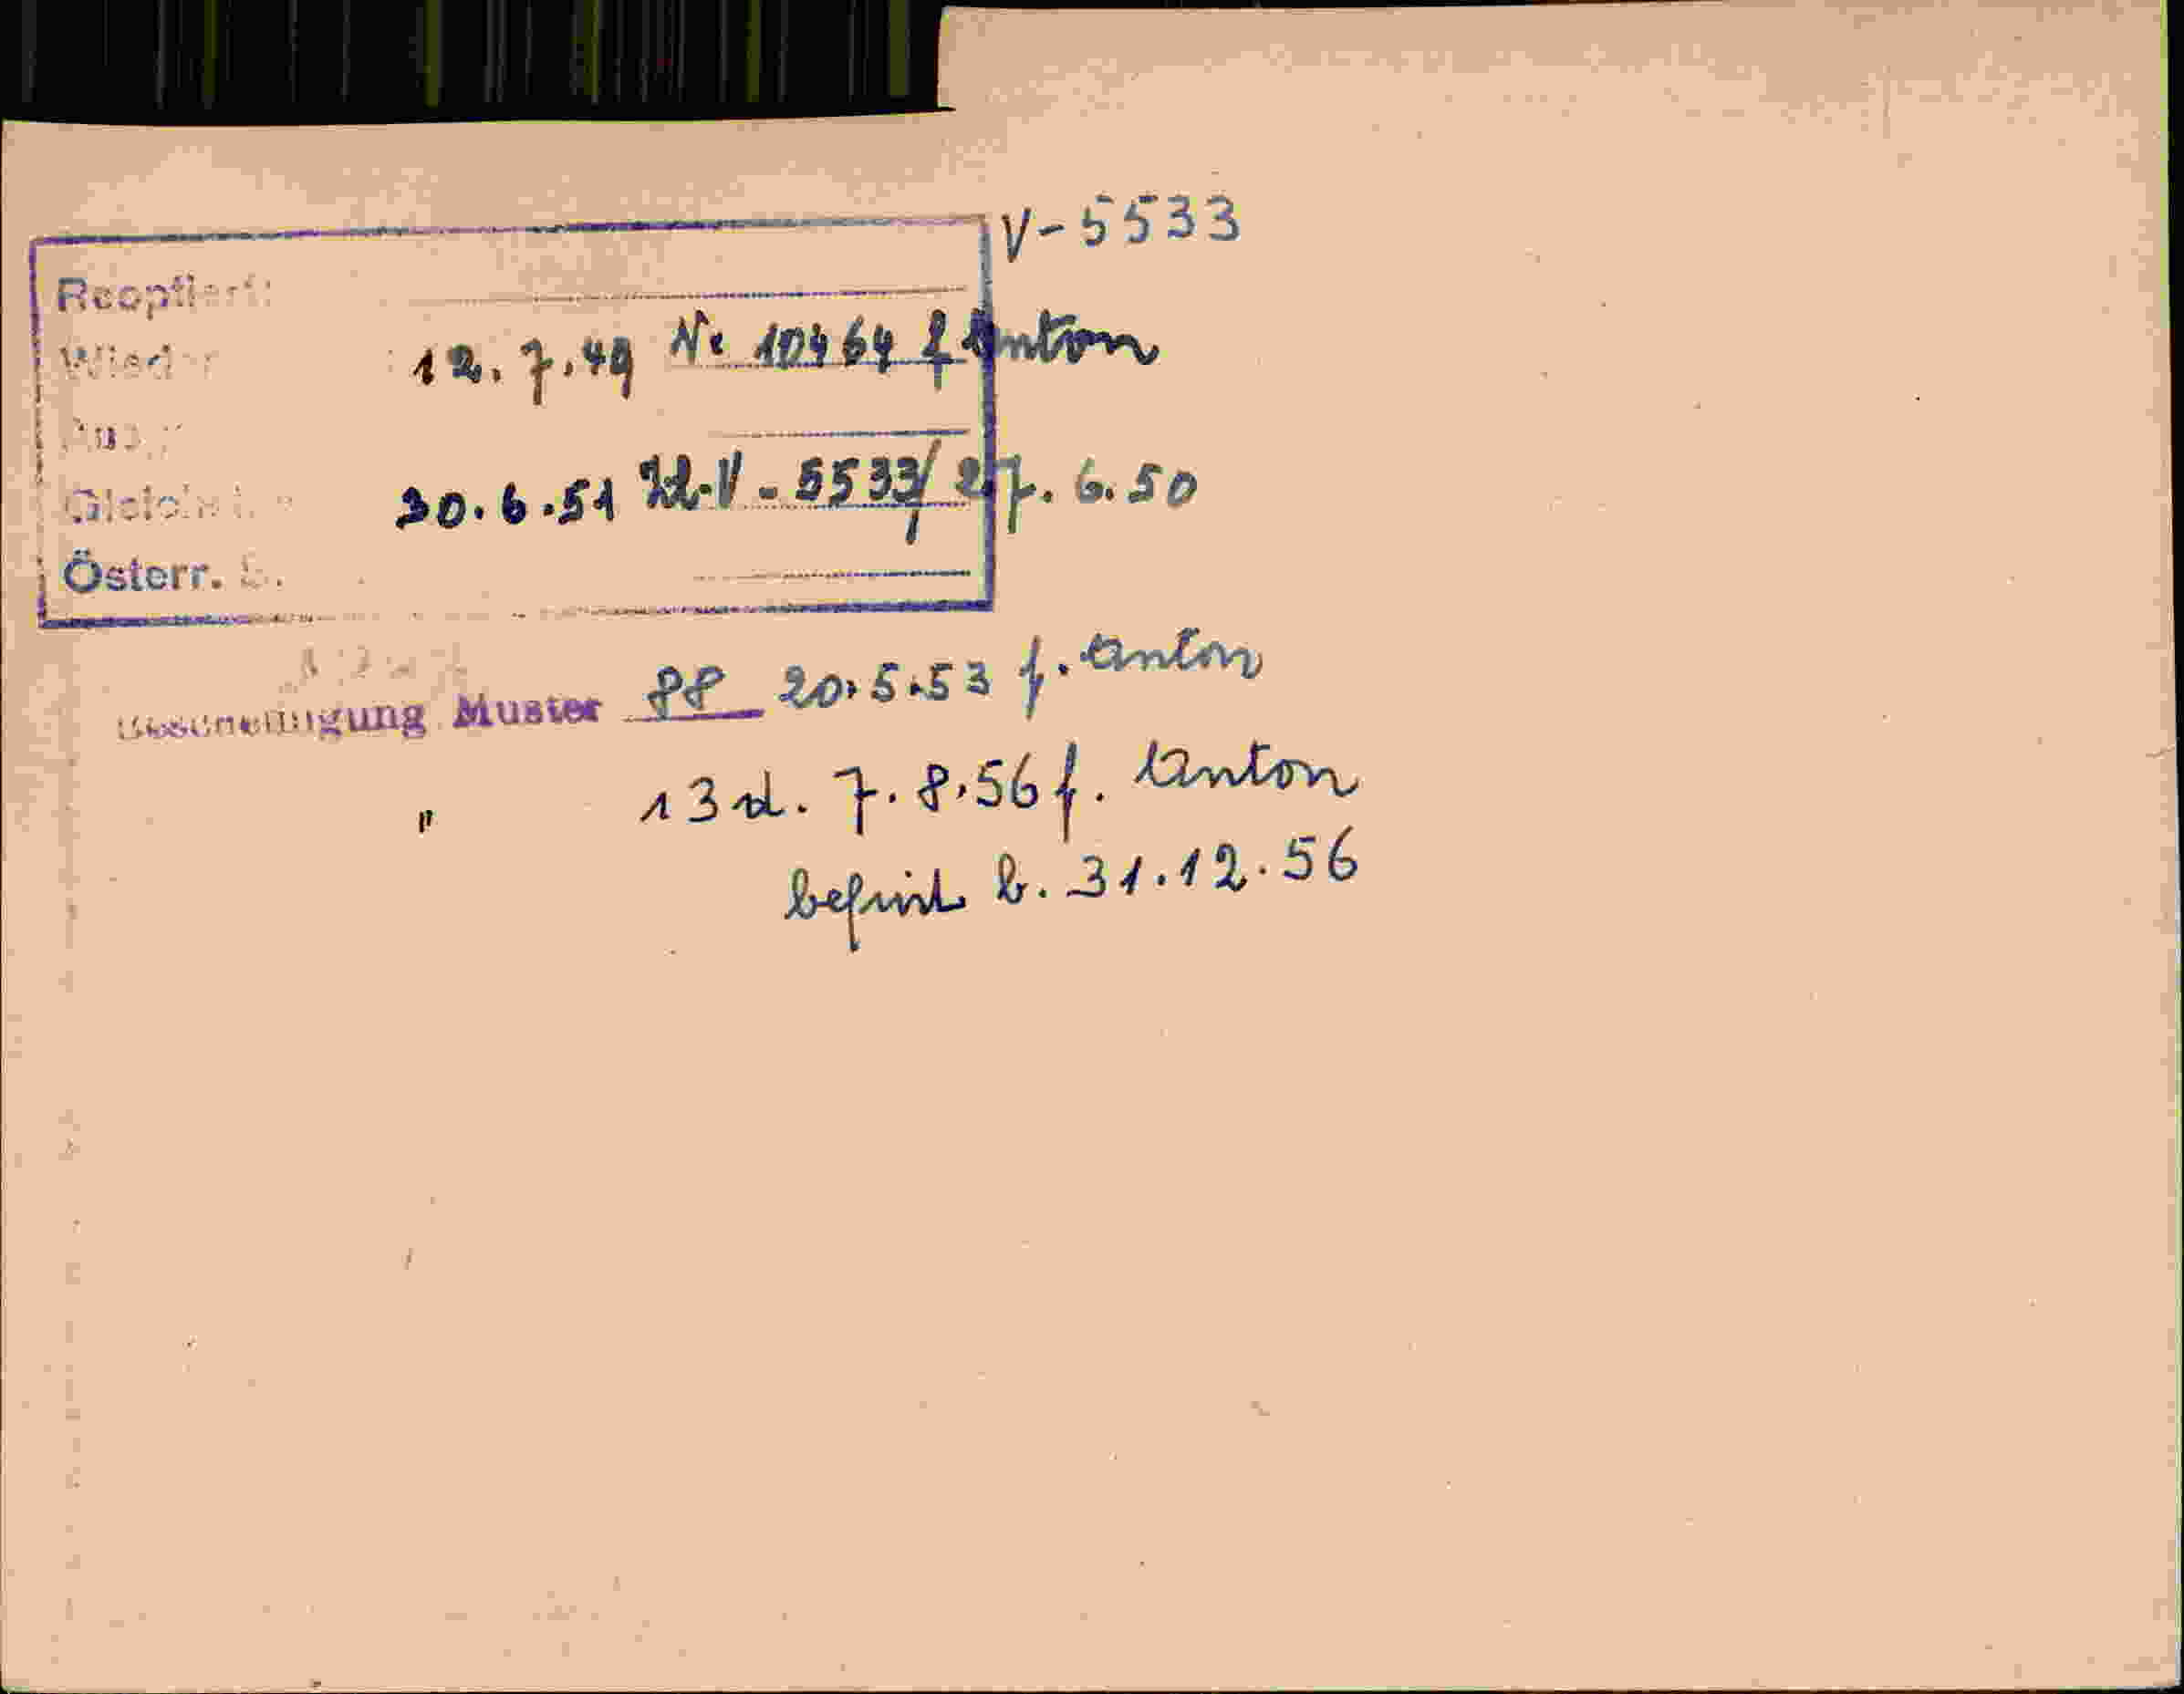 V-5533
Reoptiert:
Wieder 12.7.49 Nr 10464 f Anton
30.6.51 Zl.V-5533/27.6.50
Österr.
Bescheinigung Muster 88 20.5.53 f. Anton
" 13 d. 7.8.56 f. Anton
befrist b. 31.12.56